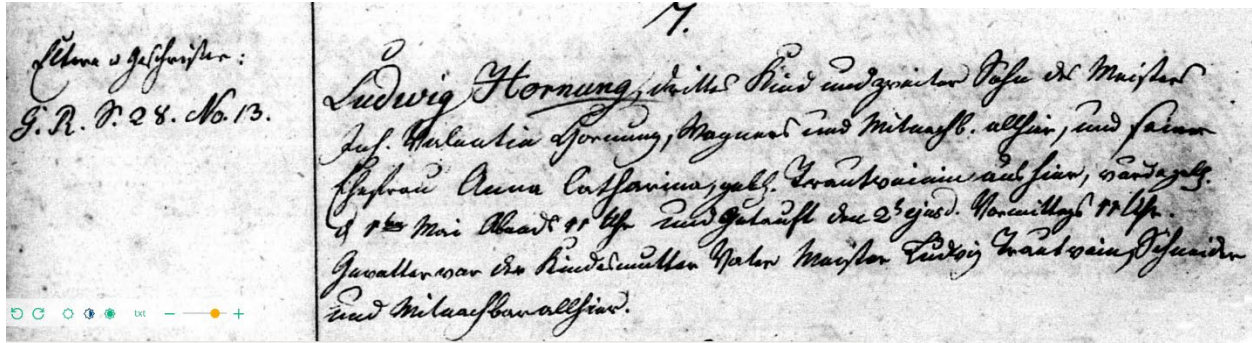 7.
Eltern u Geschwister:
G. R. S. 28. No. 13.
Ludwig Hornung, drittes Kind und zweiter Sohn des Meisters
Joh. Valentin Hornung, Wagners und Mitnachb. allhier, und seiner
Ehefrau Anna Catharina, gebh. Trautweinin aus hier, ward gebh.
d 1ten Mai Abends 11 Uhr und getauft den 2t ejusd. Vormittags 11 Uhr.
Gevatter war der Kindesmutter Vater Meister Ludwig Trautwein, Schneider
und Mitnachbar allhier.
txt